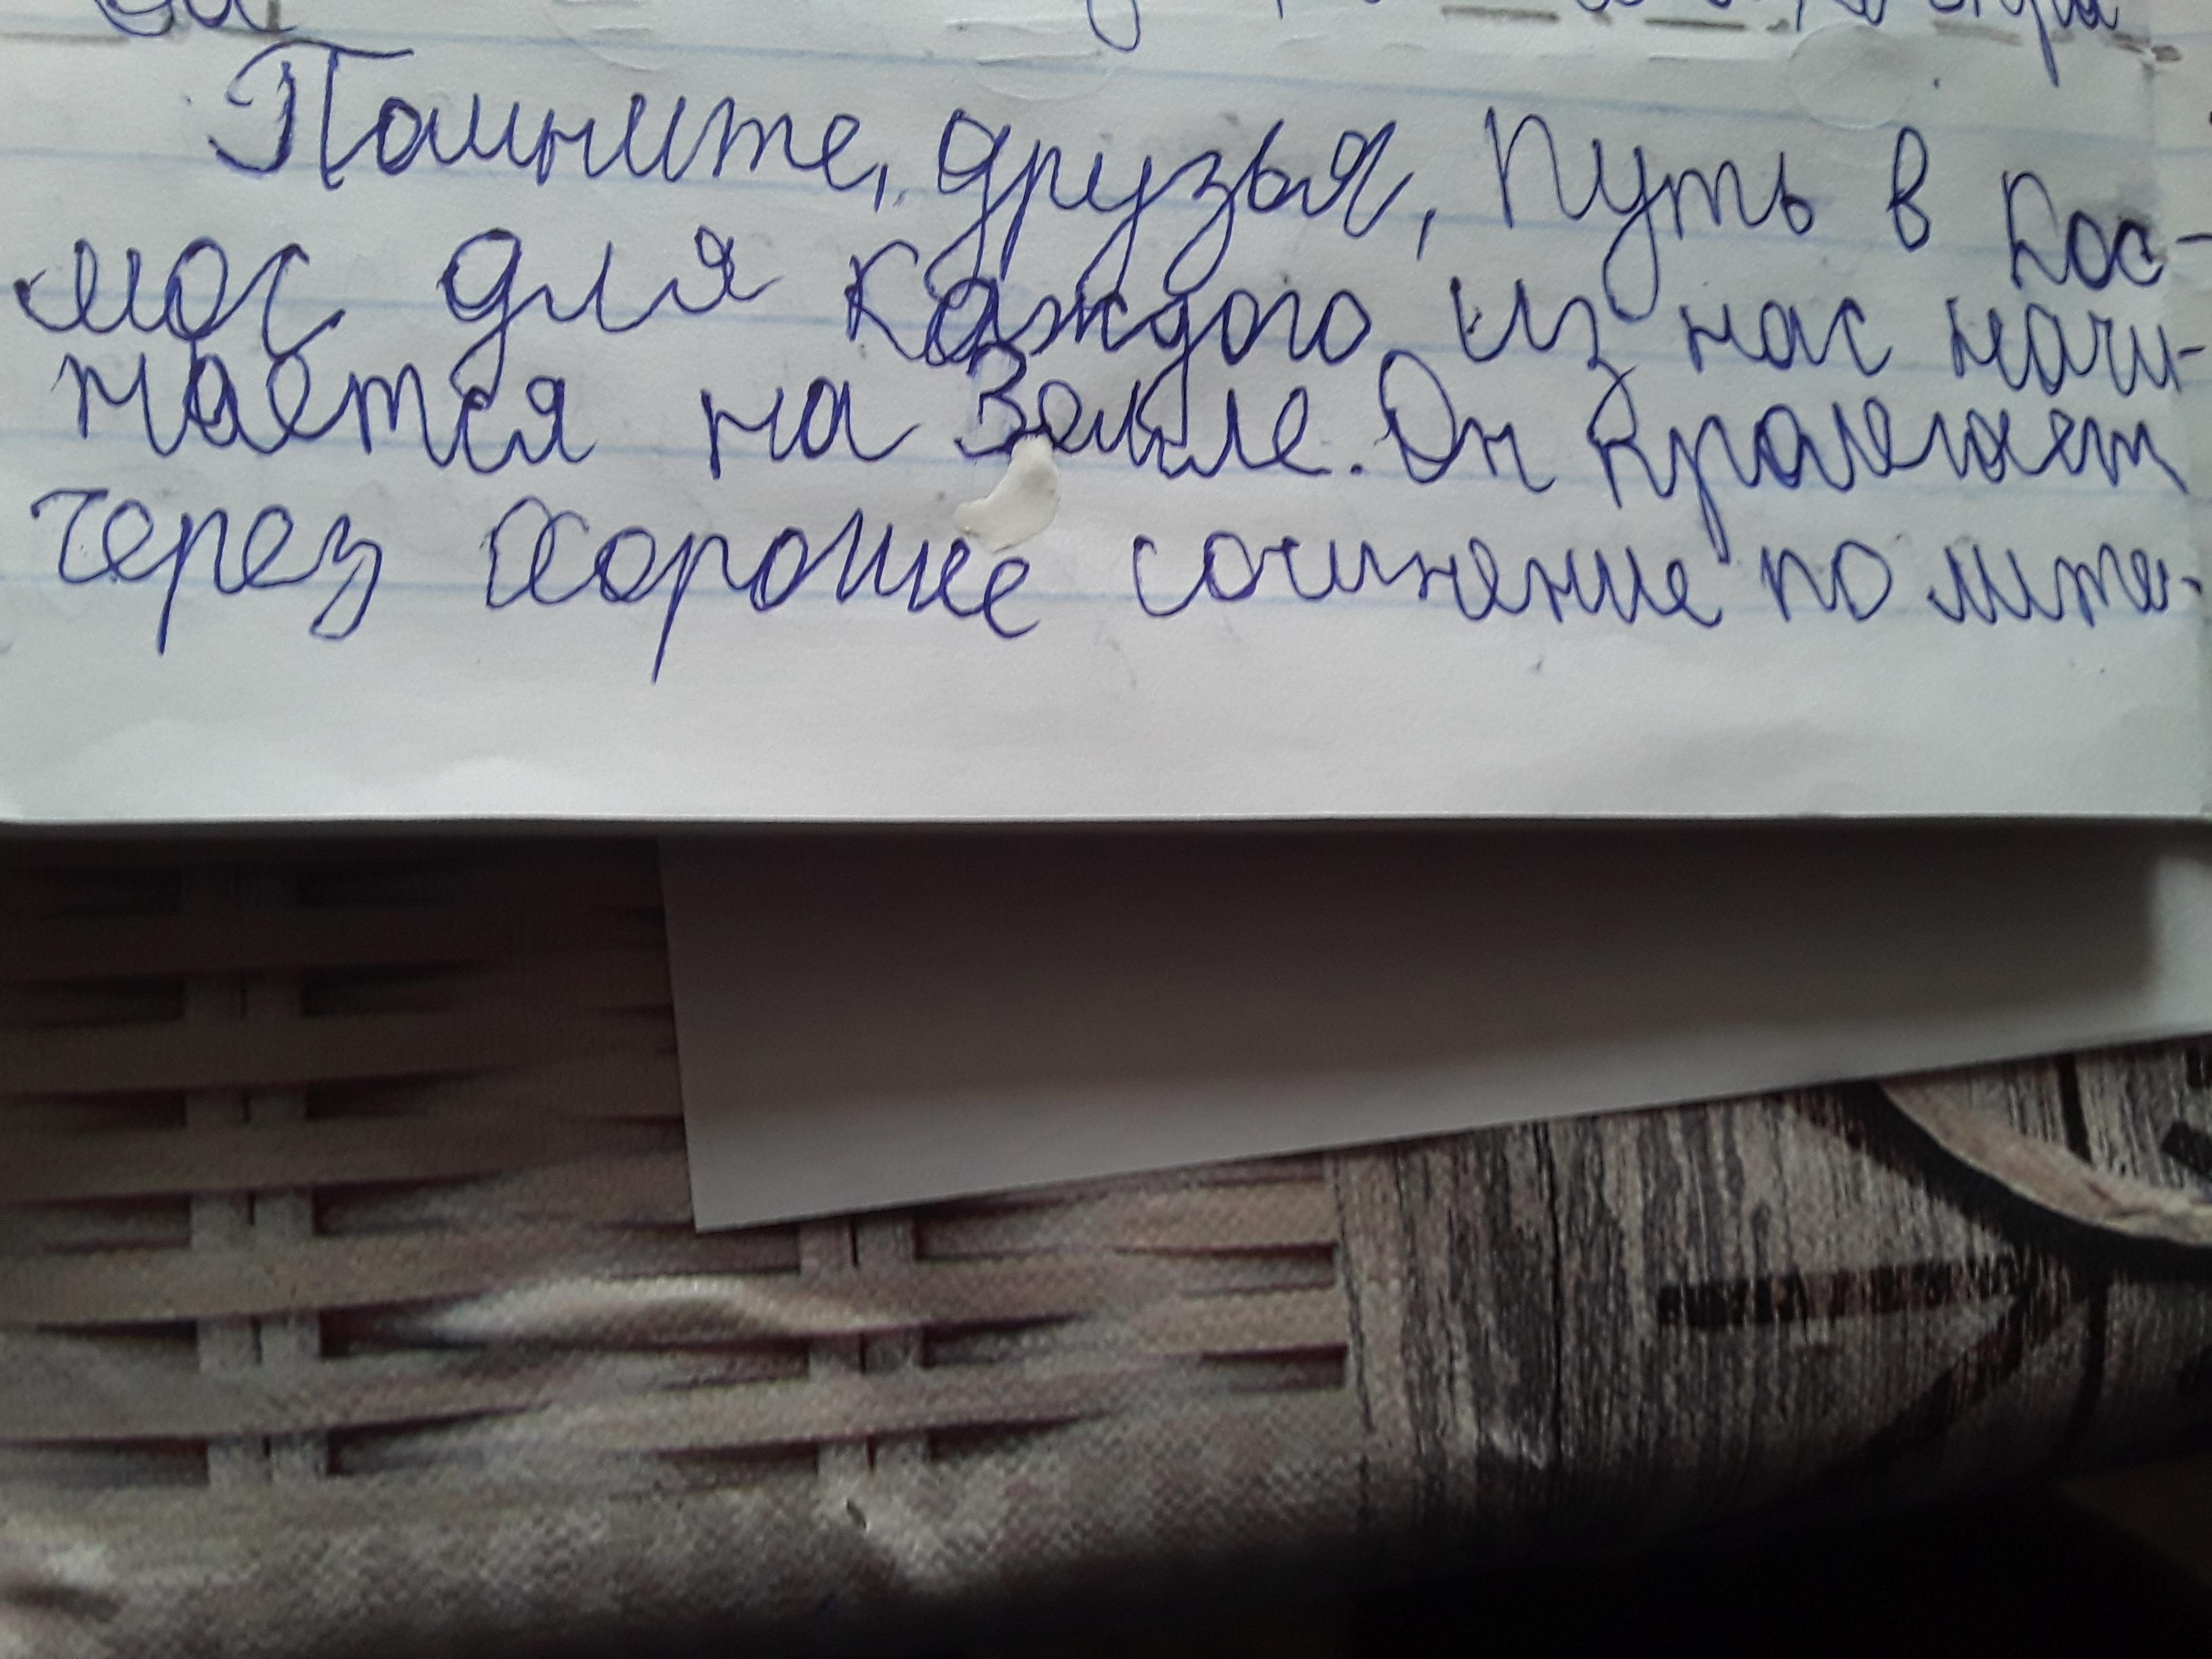 Помните, друзья, путь в кос-
мос для каждого из нас начи-
нается на Земле. Он пролежет
через хорошее сочинение по лите-